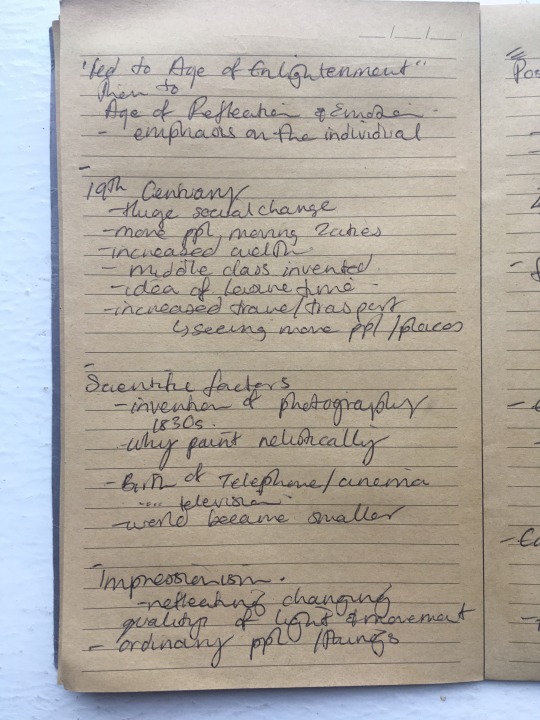 __/__/__
"Led to Age of Enlightenment"
then to
Age of Reflection & Emotion.
- emphasis on the individual
-
19th Century
- Huge social change
- more ppl moving 2 cities
- increased wealth
- middle class invented.
- idea of leisure time -
- increased travel/trasport
↳ seeing more ppl/places
-
Scientific factors
- invention of photography
1830s.
- why paint relistically
- Birth of Telephone/cinema
.... television
- world became smaller
-
Impressionism.
- reflecting changing
qualitys of light & movement
- ordinary ppl/things
Pos